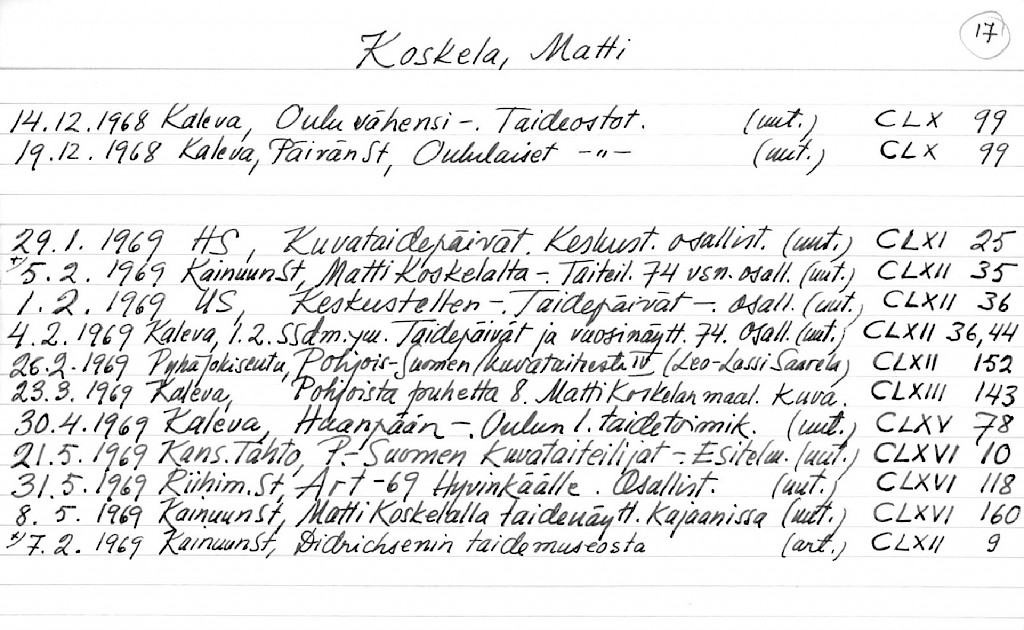 17
Koskela, Matti
14.12.1968 Kaleva, Oulu vähensi -. Taideostot. (uut.) CLX 99
19.12.1968 Kaleva, PäivänSt, Oululaiset -"- (uut.) CLX 99
29.1.1969 HS, Kuvataidepäivät. Keskust. osallist. (uut.) CLXI 25
*/5.2.1969 KainuunSt, Matti Koskelalta -. Taiteil. 74 vsn. osall. (uut.) CLXII 35
1.2.1969 US, Keskustelten -. Taidepäivät -. osall. (uut.) CLXII 36
4.2.1969 Kaleva, 1.2. SSdm. ym. Taidepäivät ja vuosinäytt. 74. Osall. (uut.) CLXII 36,44
26.2.1969 Pyhäjokiseutu, Pohjois-Suomen kuvataiteesta IV (Leo-Lassi Saarela) CLXII 152
23.3.1969 Kaleva, Pohjoista puhetta 8. Matti Koskelan maal. Kuva. CLXIII 143
30.4.1969 Kaleva, Haanpään -. Oulun l. taidetoimik. (uut.) CLXV 78
21.5.1969 Kans.Tahto, P.-Suomen Kuvataiteilijat -. Esitelm. (uut.) CLXVI 10
31.5.1969 Riihim.St, Art-69 Hyvinkäälle. Osallist. (uut.) CLXVI 118
8.5.1969 KainuunSt, Matti Koskelalla taidenäytt. Kajaanissa (uut.) CLXVI 160
*/7.2.1969 KainuunSt, Didrichsenin taidemuseosta (art.) CLXII 9